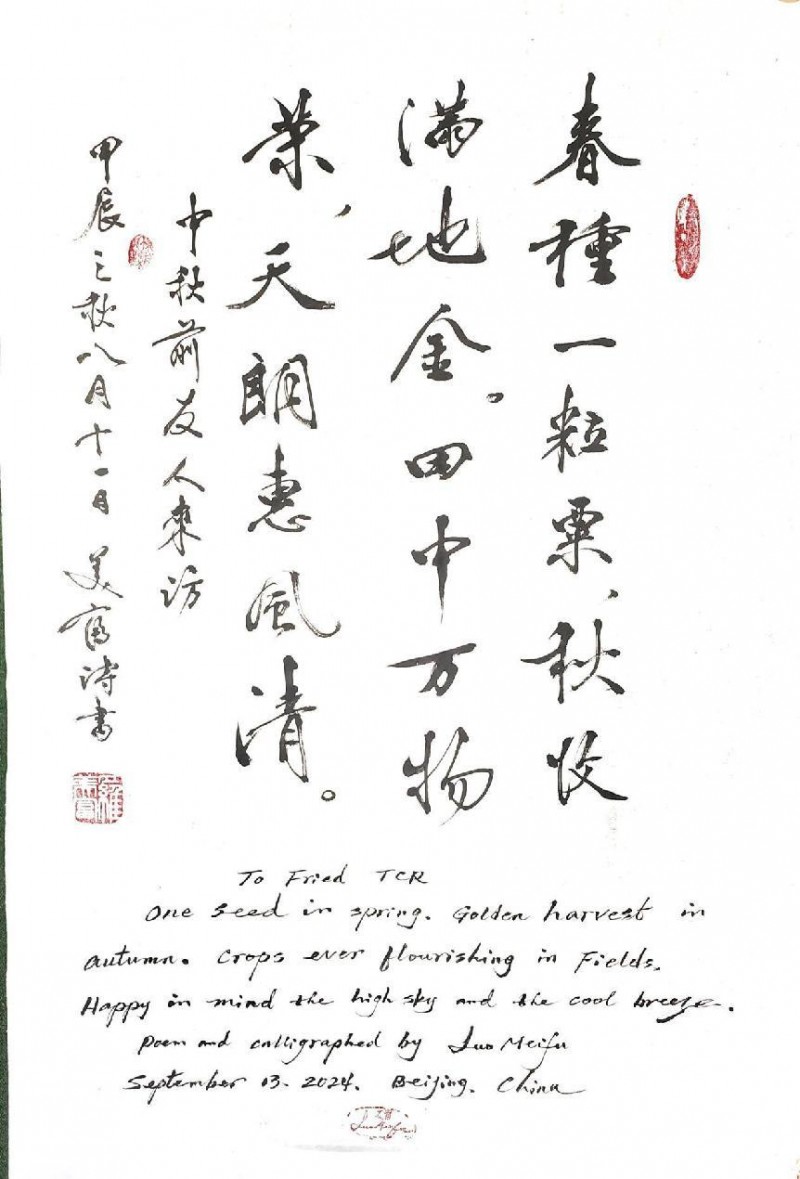 春種一粒粟、秋收
满地金。田中万物
荣、天朗惠风清。
中秋前友人来访
甲辰之秋八月十一日 美富诗书
To Fried TCR
One seed in spring. Golden harvest in
autumn. Crops ever flourishing in Fields.
Happy in mind the high sky and the cool breeze.
Poem and calligraphed by Luo Meifu
September 13. 2024. Beijing. China